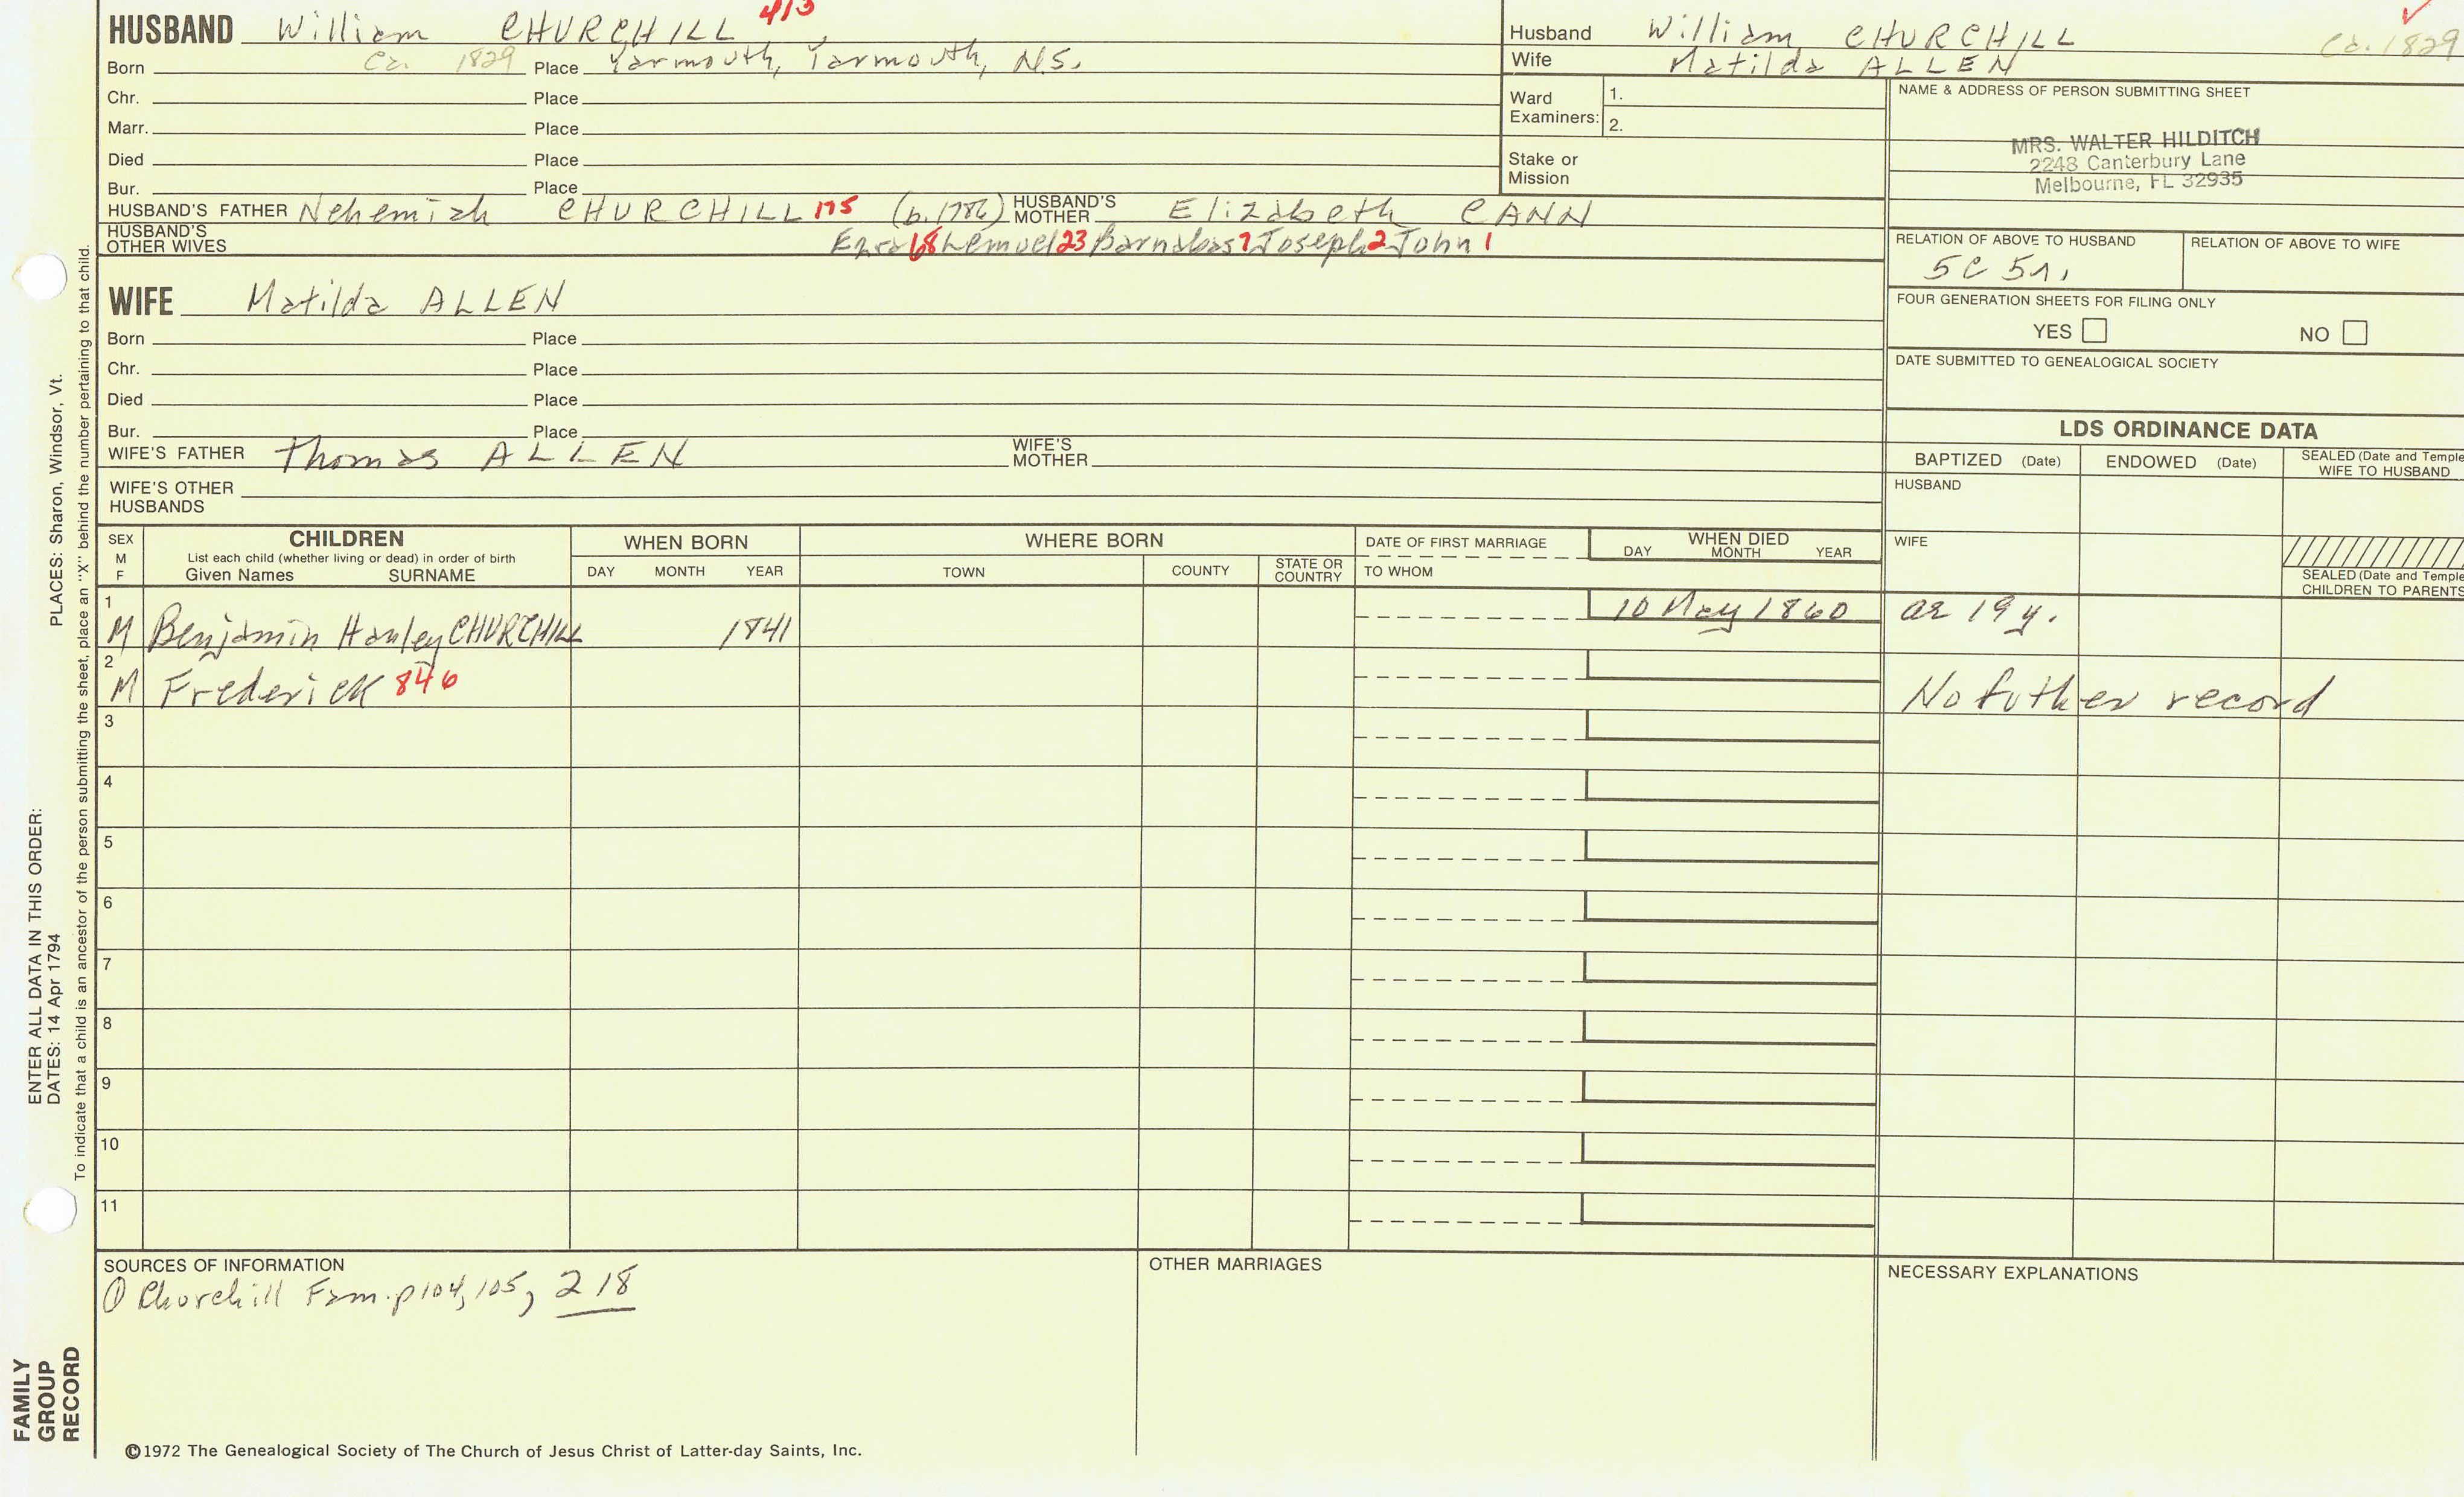 HUSBAND William CHURCHILL 413
Born Ca. 1829 Place Yarmouth, Yarmouth, N.S.
Chr. Place
Marr. Place
Died Place
Bur. Place
HUSBAND'S FATHER Nehemiah CHURCHILL 175 (b.1786) HUSBAND'S MOTHER Elizabeth CANN
HUSBAND'S OTHER WIVES Ezra 68 Lemuel 23 Barnabas 7 Joseph 2 John 1
WIFE Matilda ALLEN
Born Place
Chr. Place
Died Place
Bur. Place
WIFE'S FATHER Thomas ALLEN WIFE'S MOTHER
WIFE'S OTHER HUSBANDS
Husband William CHURCHILL Ca. 1829
Wife Matilda ALLEN
Ward Examiners: 1.
2.
Stake or Mission
NAME & ADDRESS OF PERSON SUBMITTING SHEET
MRS. WALTER HILDITCH
2248 Canterbury Lane
Melbourne, FL 32935
RELATION OF ABOVE TO HUSBAND RELATION OF ABOVE TO WIFE
5C 5r.
FOUR GENERATION SHEETS FOR FILING ONLY
YES NO
DATE SUBMITTED TO GENEALOGICAL SOCIETY
LDS ORDINANCE DATA
BAPTIZED (Date) ENDOWED (Date) SEALED (Date and Temple WIFE TO HUSBAND
HUSBAND
WIFE
SEALED (Date and Temple
CHILDREN TO PARENTS
SEX M F CHILDREN WHEN BORN WHERE BORN DATE OF FIRST MARRIAGE WHEN DIED
List each child (whether living or dead) in order of birth
Given Names SURNAME DAY MONTH YEAR TOWN COUNTY STATE OR COUNTRY TO WHOM DAY MONTH YEAR
1 M Benjamin Hanley CHURCHILL 1841 10 May 1860 ae 19 y.
2 M Frederick 846 No futher record
3
4
5
6
7
8
9
10
11
SOURCES OF INFORMATION
① Churchill Fam. p104, 105, 218
OTHER MARRIAGES
NECESSARY EXPLANATIONS
©1972 The Genealogical Society of The Church of Jesus Christ of Latter-day Saints, Inc.
FAMILY
GROUP
RECORD
ENTER ALL DATA IN THIS ORDER:
DATES: 14 Apr 1794 PLACES: Sharon, Windsor, Vt.
To indicate that a child is an ancestor of the person submitting the sheet, place an "X" behind the number pertaining to that child.